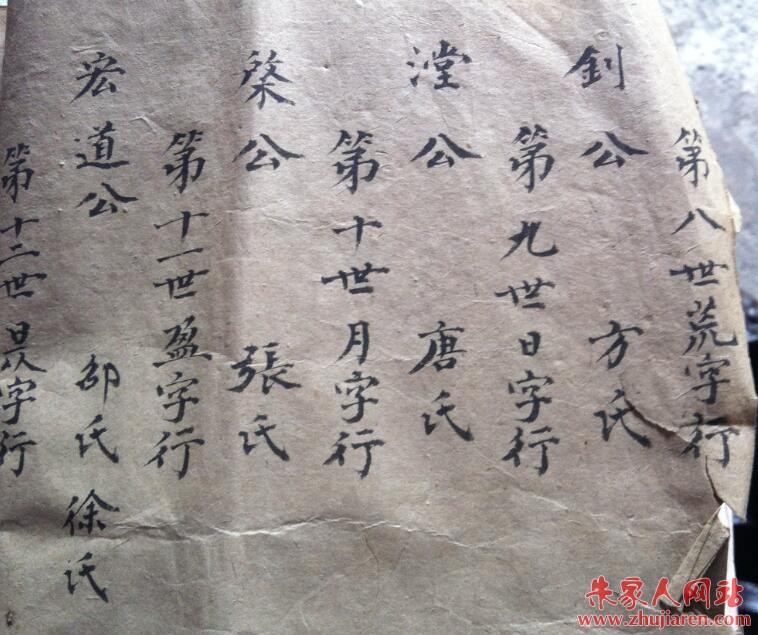 第八世荒字行
釗公 方氏
第九世日字行
漟公 唐氏
第十世月字行
棨公 張氏
第十一世盈字行
宏道公 邵氏 徐氏
第十二世昃字行
朱家人网站
www.zhujiaren.com